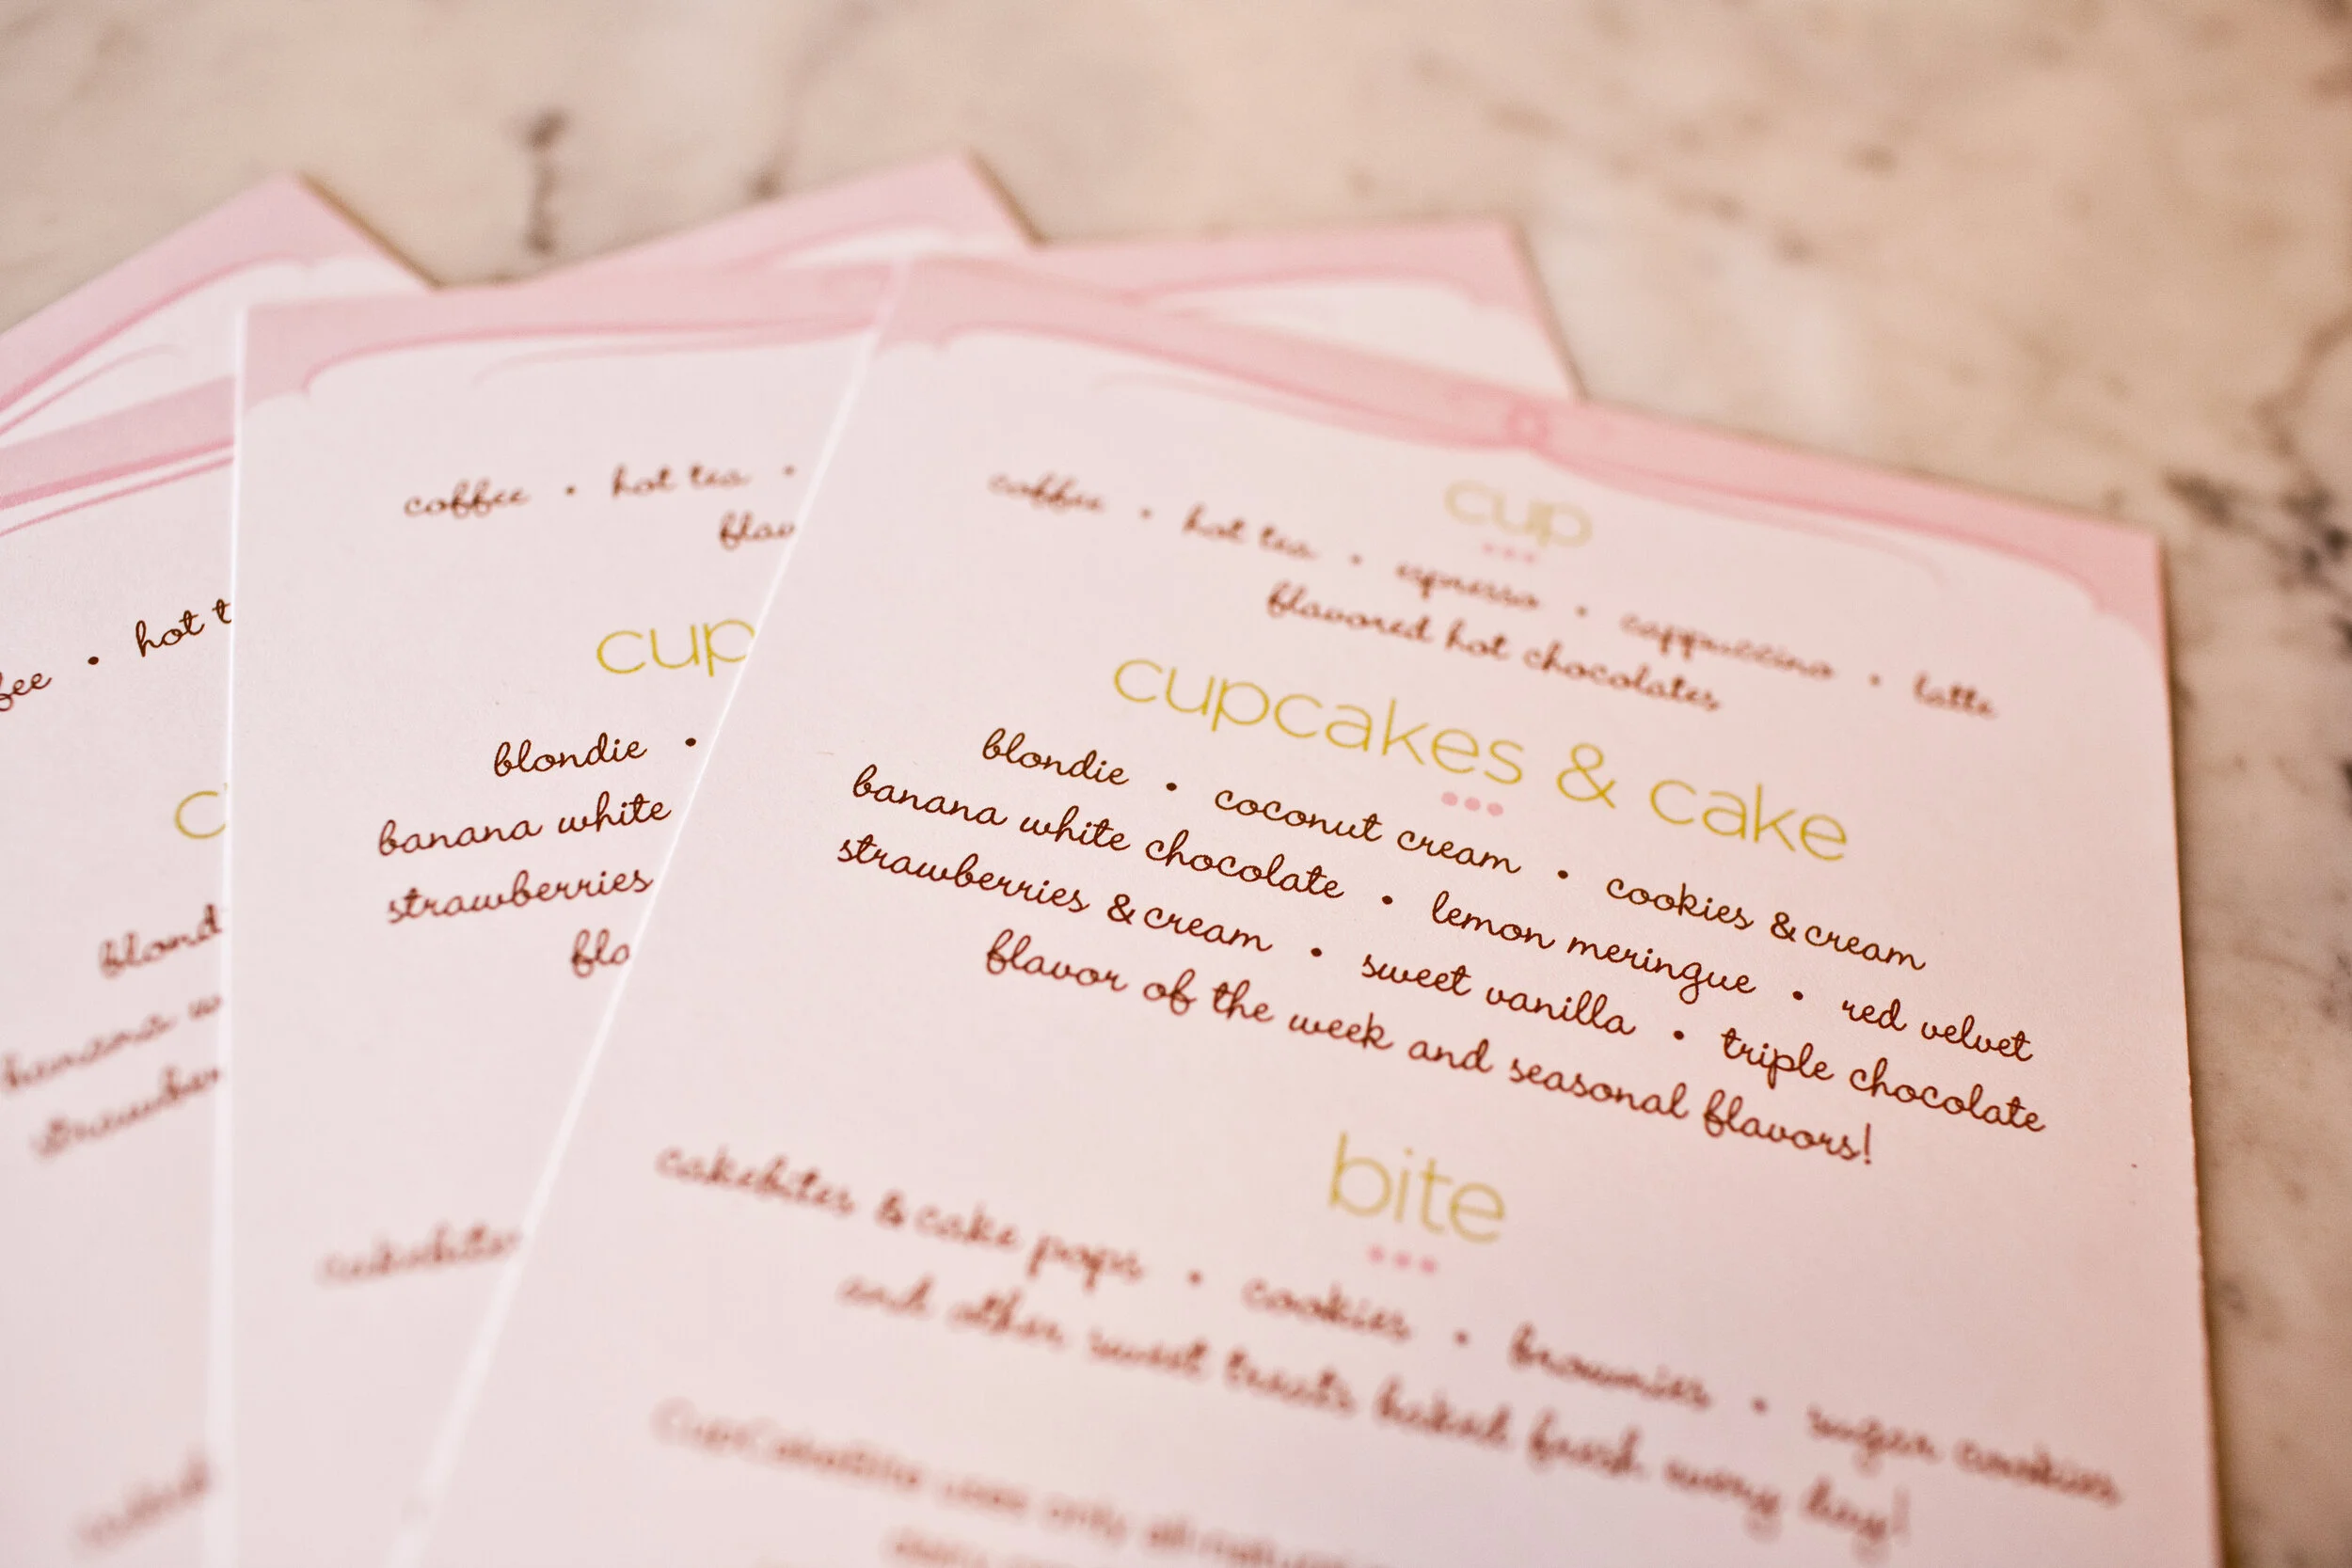 cup
coffee • hot tea • espresso • cappuccino • latte
flavored hot chocolates
cupcakes & cake
blondie • coconut cream • cookies & cream
banana white chocolate • lemon meringue • red velvet
strawberries & cream • sweet vanilla • triple chocolate
flavor of the week and seasonal flavors!
bite
cakebites & cake pops • cookies • brownies • sugar cookies
and other sweet treats baked fresh every day!
CupCakeBite uses only all natural
coffee • hot tea •
flav
cup
blondie •
banana white
strawberries
fla
cakebites
fee • hot t
c
blond
banana w
strawber